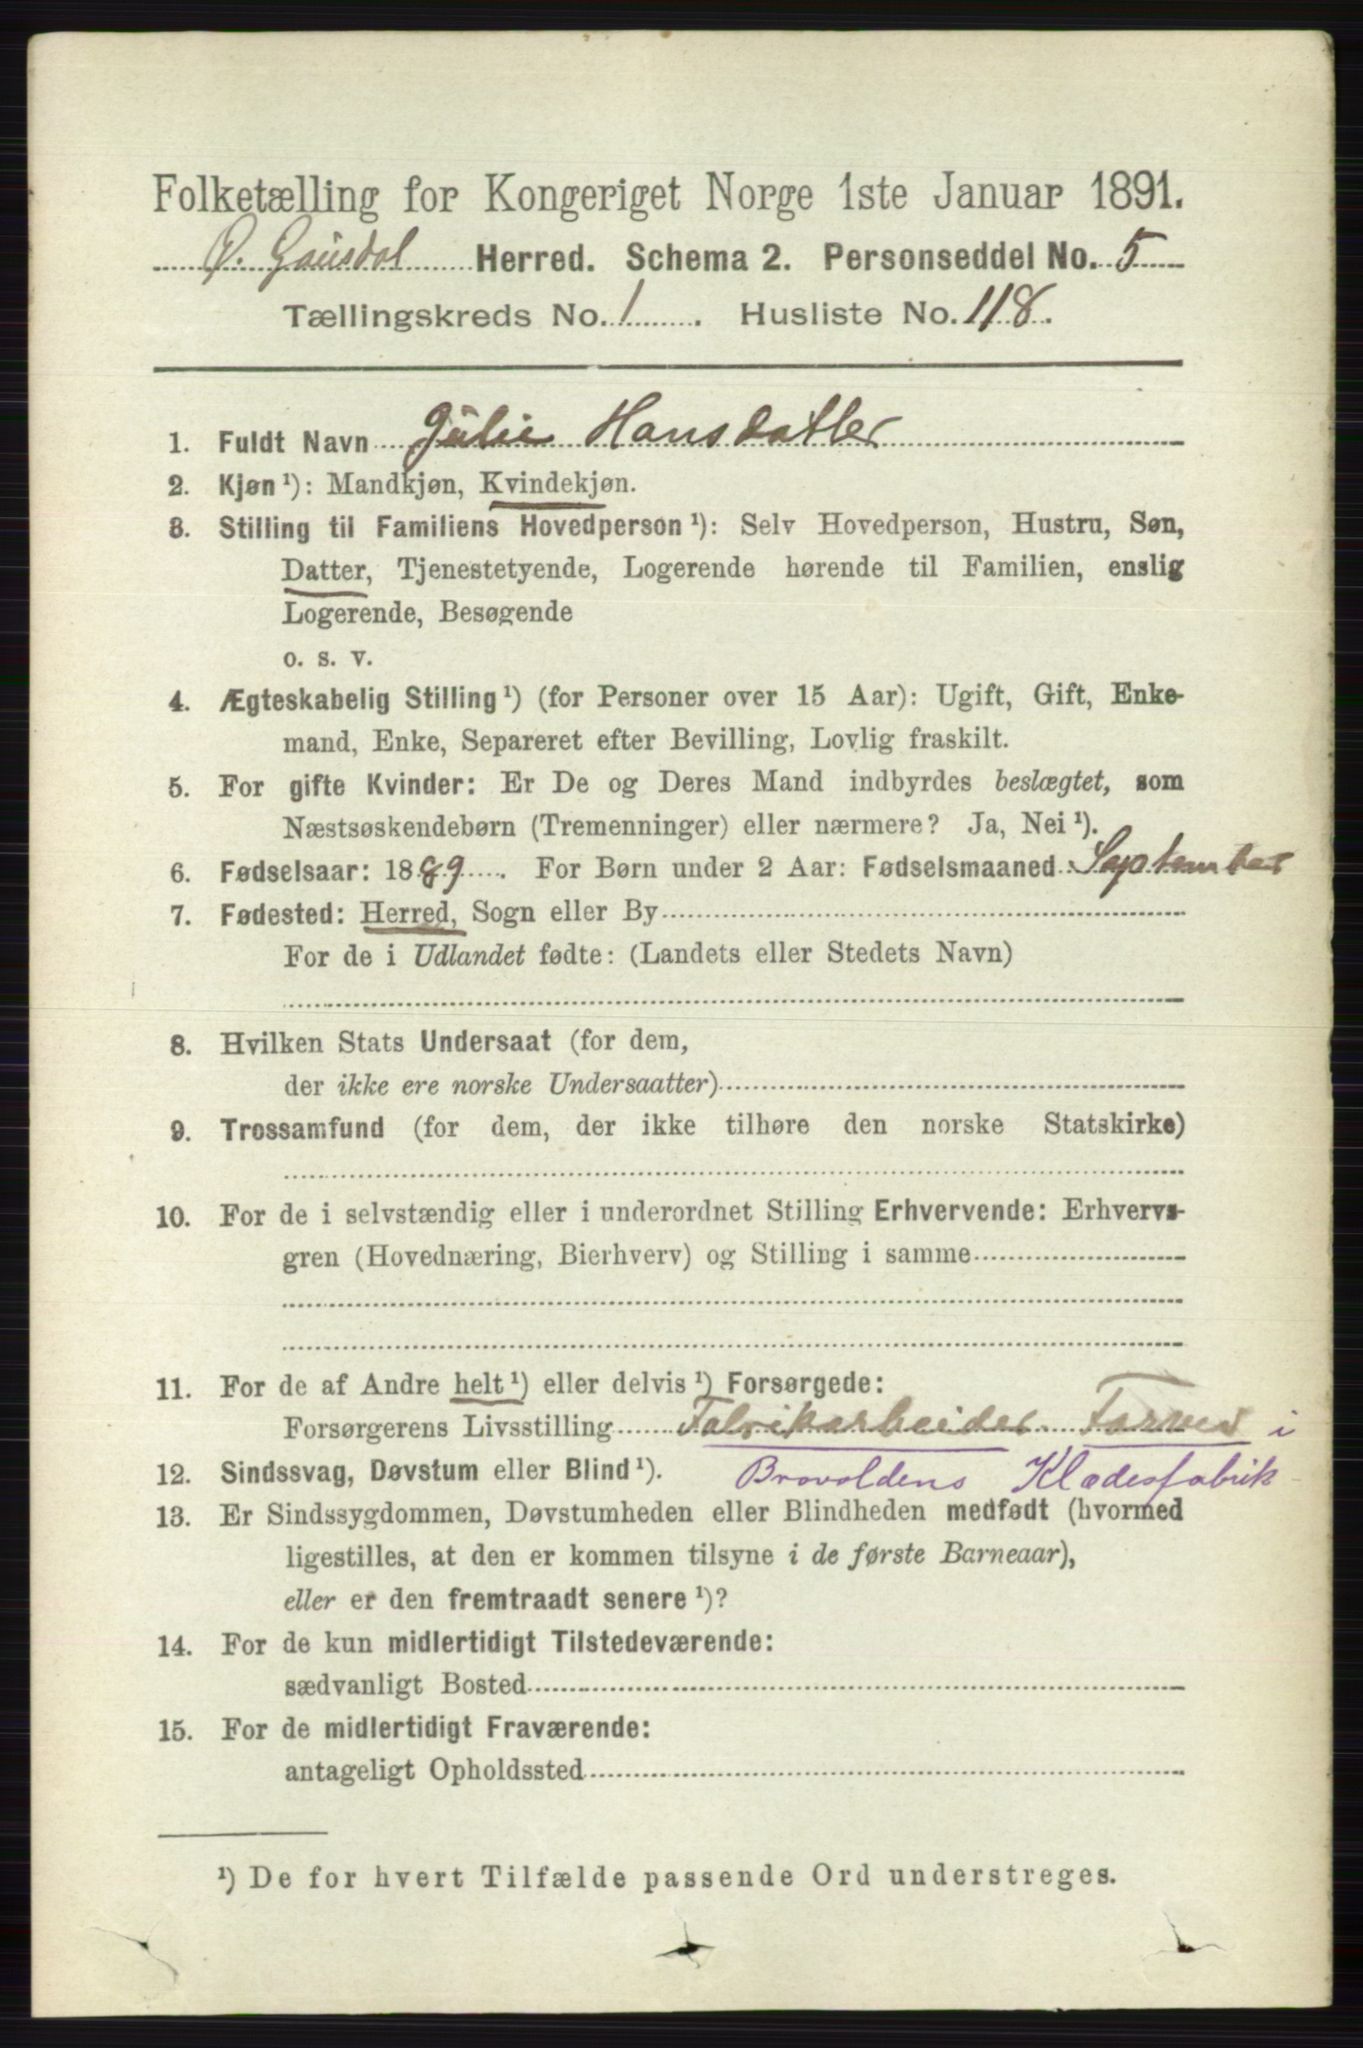 Folketælling for Kongeriget Norge 1ste Januar 1891.
Ø. Gausdal Herred. Schema 2. Personseddel No. 5
Tællingskreds No. 1. Husliste No. 118.
1. Fuldt Navn Julie Hansdatter
2. Kjøn ¹): Mandkjøn, Kvindekjøn.
3. Stilling til Familiens Hovedperson ¹): Selv Hovedperson, Hustru, Søn,
Datter, Tjenestetyende, Logerende hørende til Familien, enslig
Logerende, Besøgende
o. s. v.
4. Ægteskabelig Stilling ¹) (for Personer over 15 Aar): Ugift, Gift, Enke-
mand, Enke, Separeret efter Bevilling, Lovlig fraskilt.
5. For gifte Kvinder: Er De og Deres Mand indbyrdes beslægtet, som
Næstsøskendebørn (Tremenninger) eller nærmere? Ja, Nei ¹).
6. Fødselsaar: 1889. For Børn under 2 Aar: Fødselsmaaned September
7. Fødested: Herred, Sogn eller By
For de i Udlandet fødte: (Landets eller Stedets Navn)
8. Hvilken Stats Undersaat (for dem,
der ikke ere norske Undersaatter)
9. Trossamfund (for dem, der ikke tilhøre den norske Statskirke)
10. For de i selvstændig eller i underordnet Stilling Erhvervende: Erhvervs-
gren (Hovednæring, Bierhverv) og Stilling i samme
11. For de af Andre helt ¹) eller delvis ¹) Forsørgede:
Forsørgerens Livsstilling Fabrikarbeider i
12. Sindssvag, Døvstum eller Blind ¹). Bravoldens Klædesfabrik
13. Er Sindssygdommen, Døvstumheden eller Blindheden medfødt (hvormed
ligestilles, at den er kommen tilsyne i de første Barneaar),
eller er den fremtraadt senere ¹)?
14. For de kun midlertidigt Tilstedeværende:
sædvanligt Bosted
15. For de midlertidigt Fraværende:
antageligt Opholdssted
¹) De for hvert Tilfælde passende Ord understreges.